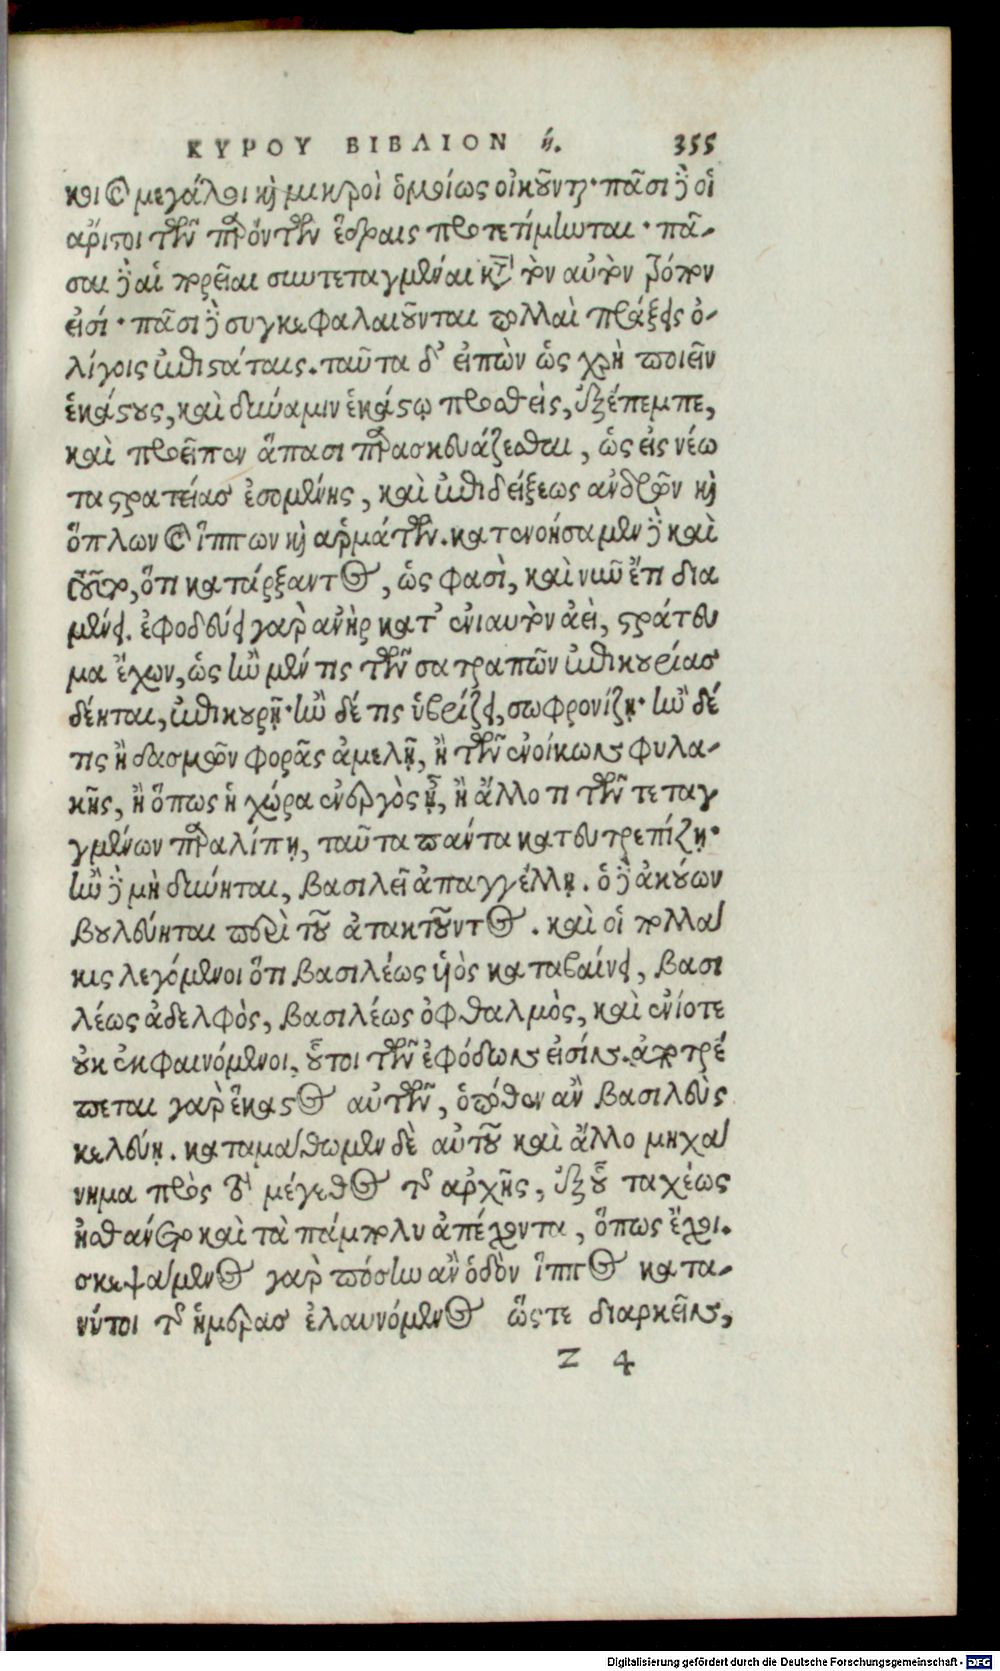 ΚΥΡΟΥ ΒΙΒΛΙΟΝ ή. 355
κοι καὶ μεγάλοι καὶ μικροὶ ὁμοίως οἰκοῦνται· πᾶσι δὲ οἱ
ἄριστοι τῶν παρόντων ἕδραις προτετίμωται· πᾶ-
σαι δὲ αἱ πορεῖαι συντεταγμέναι κατὰ τὸν αὐτὸν τρόπον
εἰσί· πᾶσι δὲ συγκεφαλαιοῦνται πολλαὶ πράξεις ὀ-
λίγοις ἐπιστάταις. ταῦτα δ' εἰπὼν ὡς χρὴ ποιεῖν
ἑκάστους, καὶ δύναμιν ἑκάστῳ προσθεὶς, ἐξέπεμπε,
καὶ προεῖπεν ἅπασι παρασκευάζεσθαι, ὡς εἰς νέω
τα στρατείας ἐσομένης, καὶ ἐπιδείξεως ἀνδρῶν καὶ
ὅπλων καὶ ἵππων καὶ ἁρμάτων. κατενοήσαμεν δὲ καὶ
τοῦτο, ὅτι κατάρξαντος, ὡς φασὶ, καὶ νῦν ἔτι δια
μένει. ἐφοδεύει γὰρ ἀνὴρ κατ' ἐνιαυτὸν ἀεὶ, στράτευ
μα ἔχων, ὡς ἢν μέν τις τῶν σατραπῶν ἐπικουρίας
δέηται, ἐπικουρῇ· ἢν δέ τις ὑβρίζει, σωφρονίζῃ· ἢν δέ
τις ἢ δασμῶν φορᾶς ἀμελῇ, ἢ τῶν ἐνοίκων φυλα-
κῆς, ἢ ὅπως ἡ χώρα ἐνεργὸς ᾖ, ἢ ἄλλο τι τῶν τεταγ
γμένων παραλίπῃ, ταῦτα πάντα κατευτρεπίζῃ·
ἢν δὲ μὴ δύνηται, βασιλεῖ ἀπαγγέλλῃ. ὁ δὲ ἀκούων
βουλεύηται περὶ τοῦ ἀτακτοῦντος. καὶ οἱ πολλά
κις λεγόμενοι ὅτι βασιλέως υἱὸς καταβαίνει, βασι
λέως ἀδελφὸς, βασιλέως ὀφθαλμὸς, καὶ ἐνίοτε
οὐκ ἐκφαινόμενοι, οὗτοι τῶν ἐφόδων εἰσίν. ἀποτρέ
πεται γὰρ ἕκαστος αὐτῶν, ὁπόθεν ἂν βασιλεὺς
κελεύῃ. καταμάθωμεν δὲ αὐτοῦ καὶ ἄλλο μηχά
νημα πρὸς τὸ μέγεθος τῆς ἀρχῆς, ἐξ οὗ ταχέως
ᾐσθάνετο καὶ τὰ πάμπολυ ἀπέχοντα, ὅπως ἔχοι.
σκεψάμενος γὰρ πόσην ἂν ὁδὸν ἵππος κατα-
νύτοι τῆς ἡμέρας ἐλαυνόμενος ὥστε διαρκεῖν,
Z 4
Digitalisierung gefördert durch die Deutsche Forschungsgemeinschaft - DFG